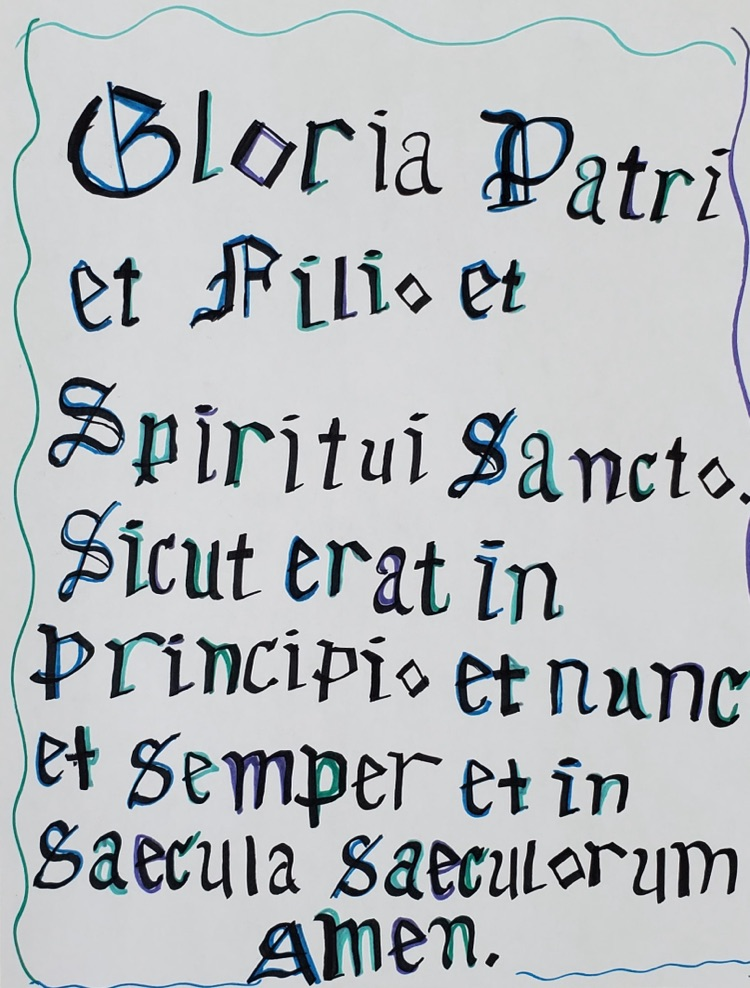 Gloria Patri
et Filio et
Spiritui Sancto.
Sicut erat in
Principio et nunc
et Semper et in
Saecula Saeculorum
Amen.